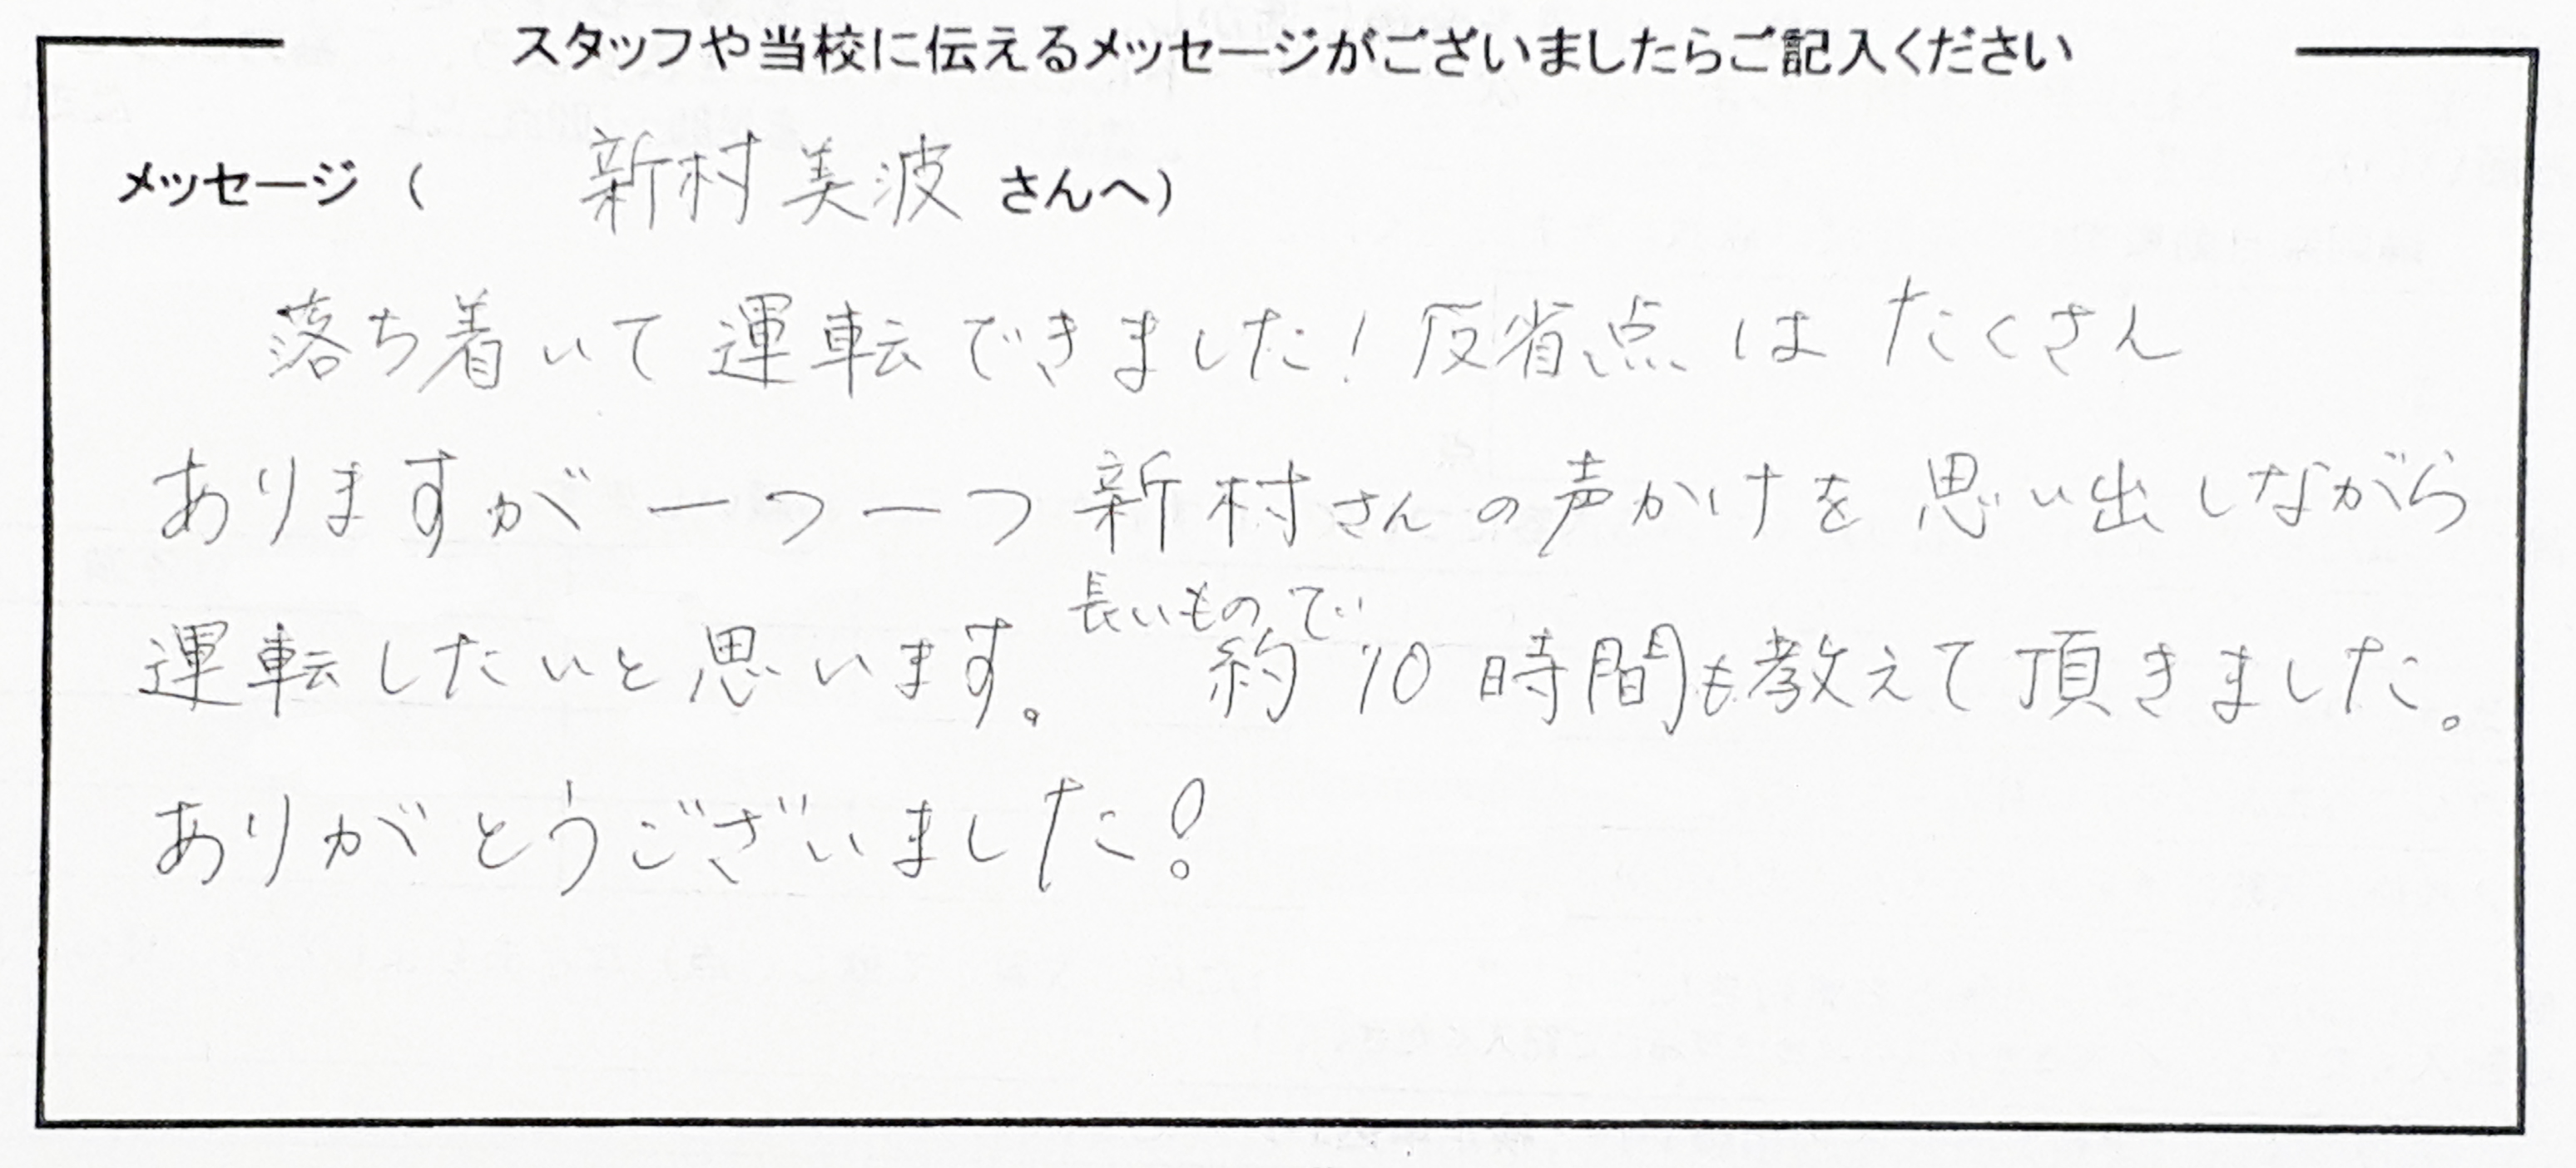 スタッフや当校に伝えるメッセージがございましたらご記入ください
メッセージ（　新村美波 さんへ）
落ち着いて運転できました！反省点はたくさん
ありますが一つ一つ新村さんの声かけを思い出しながら
運転したいと思います。長いもので約10時間も教えて頂きました。
ありがとうございました！